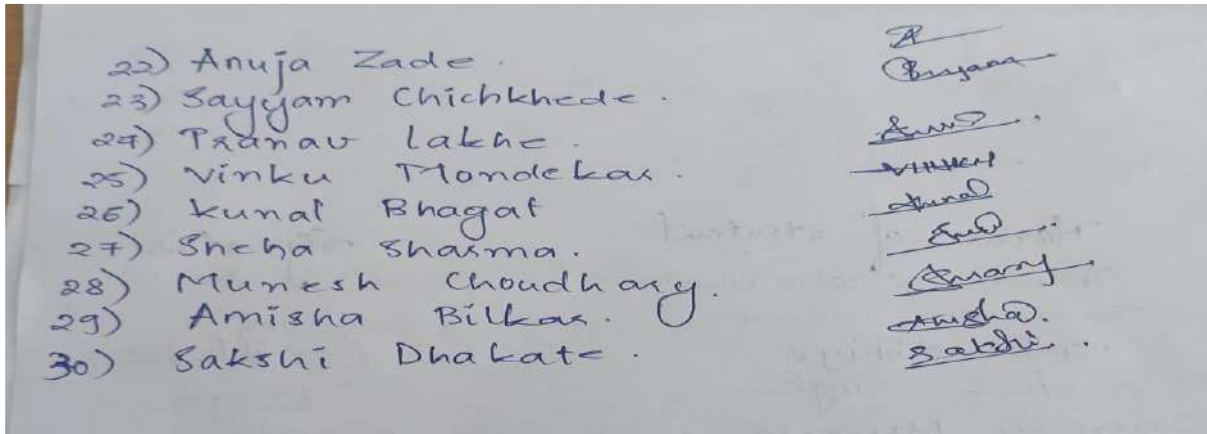 22) Anuja Zade.
23) Sayyam Chichkhede.
24) Pranav Lakhe.
25) Vinku Mondekar.
26) Kunal Bhagat
27) Sneha Sharma.
28) Munesh Choudhary.
29) Amisha Bilkar.
30) Sakshi Dhakate. Sakshi.